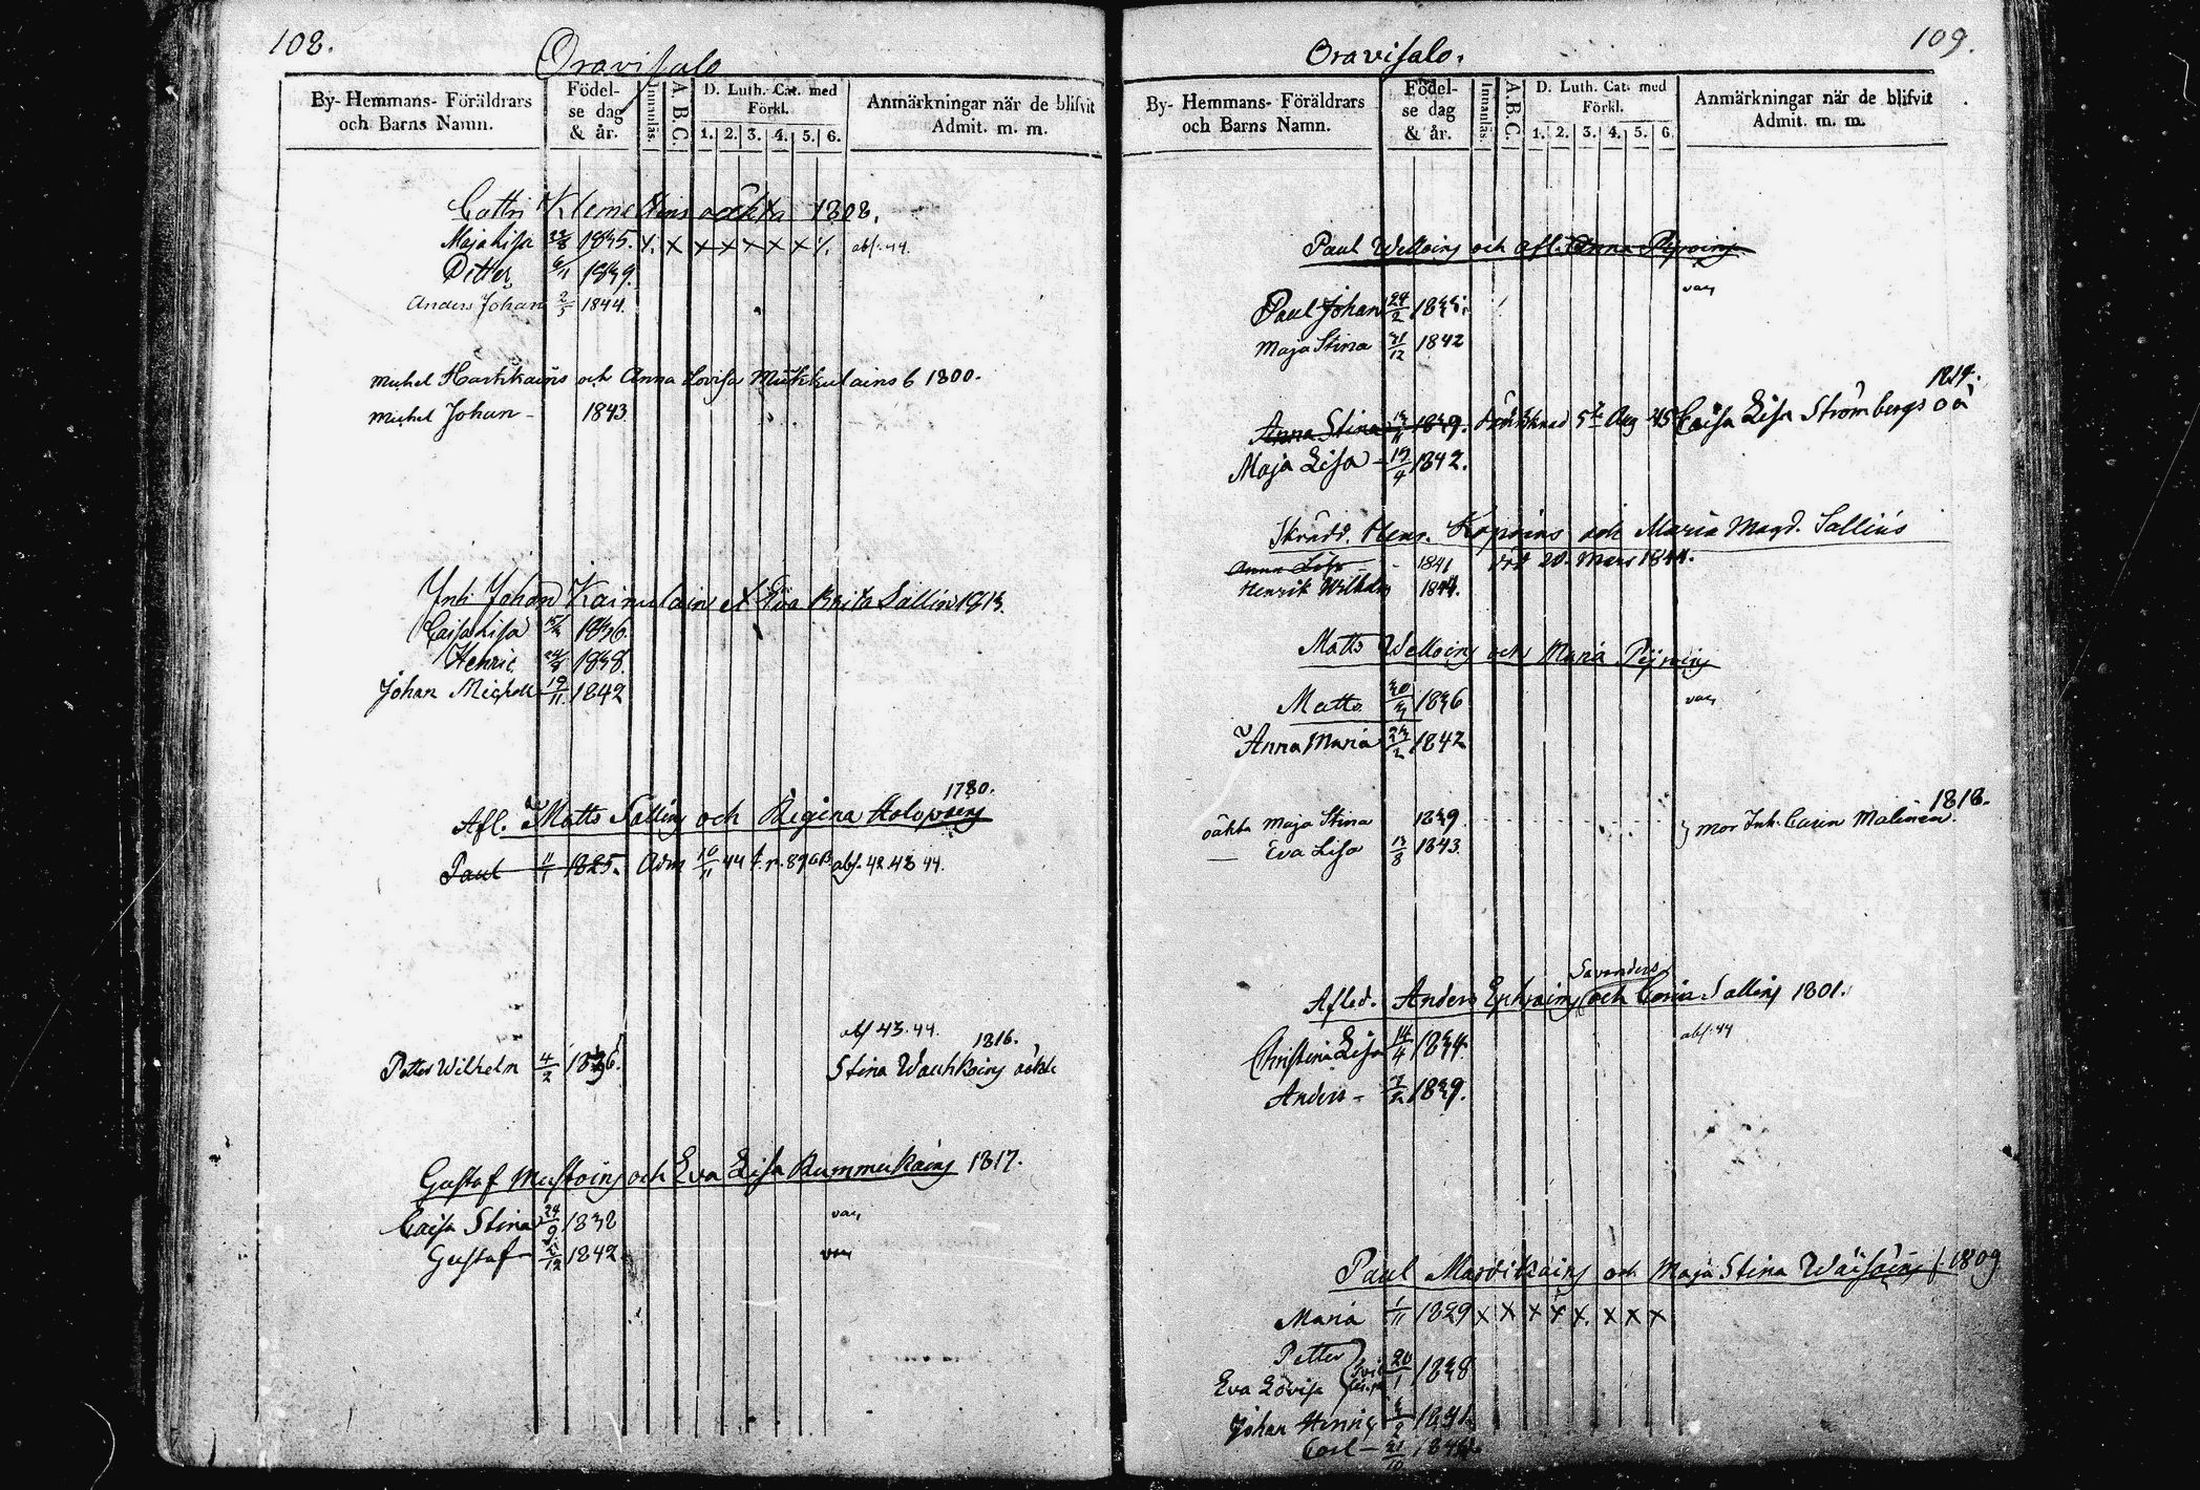 108.
Oravisalo
By- Hemmans- Föräldrars och Barns Namn.
Födel- se dag & år.
Innanläs.
A. B. C.
D. Luth. Cat. med Förkl.
1. 2. 3. 4. 5. 6.
Anmärkningar när de blifvit Admit. m. m.
Cattri Klemettins oächta 1808.
Maja Lisa 1835. x x x x x x x abs. 44.
Petter 6/11 1839.
Anders Johan 2/5 1844.
Michel Hartikains och Anna Lovisa Mukkulains 6 1800.
Michel Johan - 1843
Inh. Johan Kainulain Eva Brita Sallin 1813.
Caisa Lisa 1836.
Henric 1838.
Johan Michell 19/11 1842
1780.
Afl. Matts Sallins och Regina Holopains
Paul 11/1 1825. Adm 10/11 44 abs. 42 43 44.
abs 43. 44.
1816.
Petter Wilhelm 4/2 1836. Stina Wauhkoins oäkta
Gustaf Mustoins och Eva Lisa Kummukains 1817.
Caisa Stina 24/9 1838 vac,
Gustaf 1842 vac
109.
Oravisalo.
By- Hemmans- Föräldrars och Barns Namn.
Födel- se dag & år.
Innanläs.
A. B. C.
D. Luth. Cat. med Förkl.
1. 2. 3. 4. 5. 6.
Anmärkningar när de blifvit Admit. m. m.
Paul och afl. Anna
vac,
Paul Johan 24/2 1835.
Maja Stina 31/12 1842
1819.
Anna Stina 1839. 5te Aug 45 Caisa Lisa Strömbergs oä
Maja Lisa - 19/4 1842.
Skrädd. Henr. Kopoins och Maria Magd. Sallins
Anna Lisa - - 1841 död 20. Mars 1844.
Henrik Wilhelm 1844.
Matts och Maria
Matts 30/3 1836 vac,
Anna Maria 23/2 1842
1818.
oäkta Maja Stina 1839 mor Inh. Carin Malinen.
— Eva Lisa 13/8 1843.
Savanders
Afled. Anders Ephraims och Carin Sallins 1801.
Christina Lisa 14/4 1834. abs. 44
Anders - 1839.
Paul Mardikains och Maja Stina Wäisäins f. 1809
Maria 1/11 1829 x x x x x x x x
Petter
Eva Lovisa 20/1 1838
Johan Henric 3/2 1841
Carl - 31/10